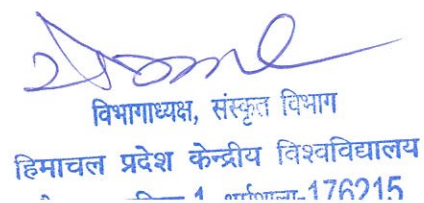 विभागाध्यक्ष, संस्कृत विभाग
हिमाचल प्रदेश केन्द्रीय विश्वविद्यालय
1 धर्मशाला-176215